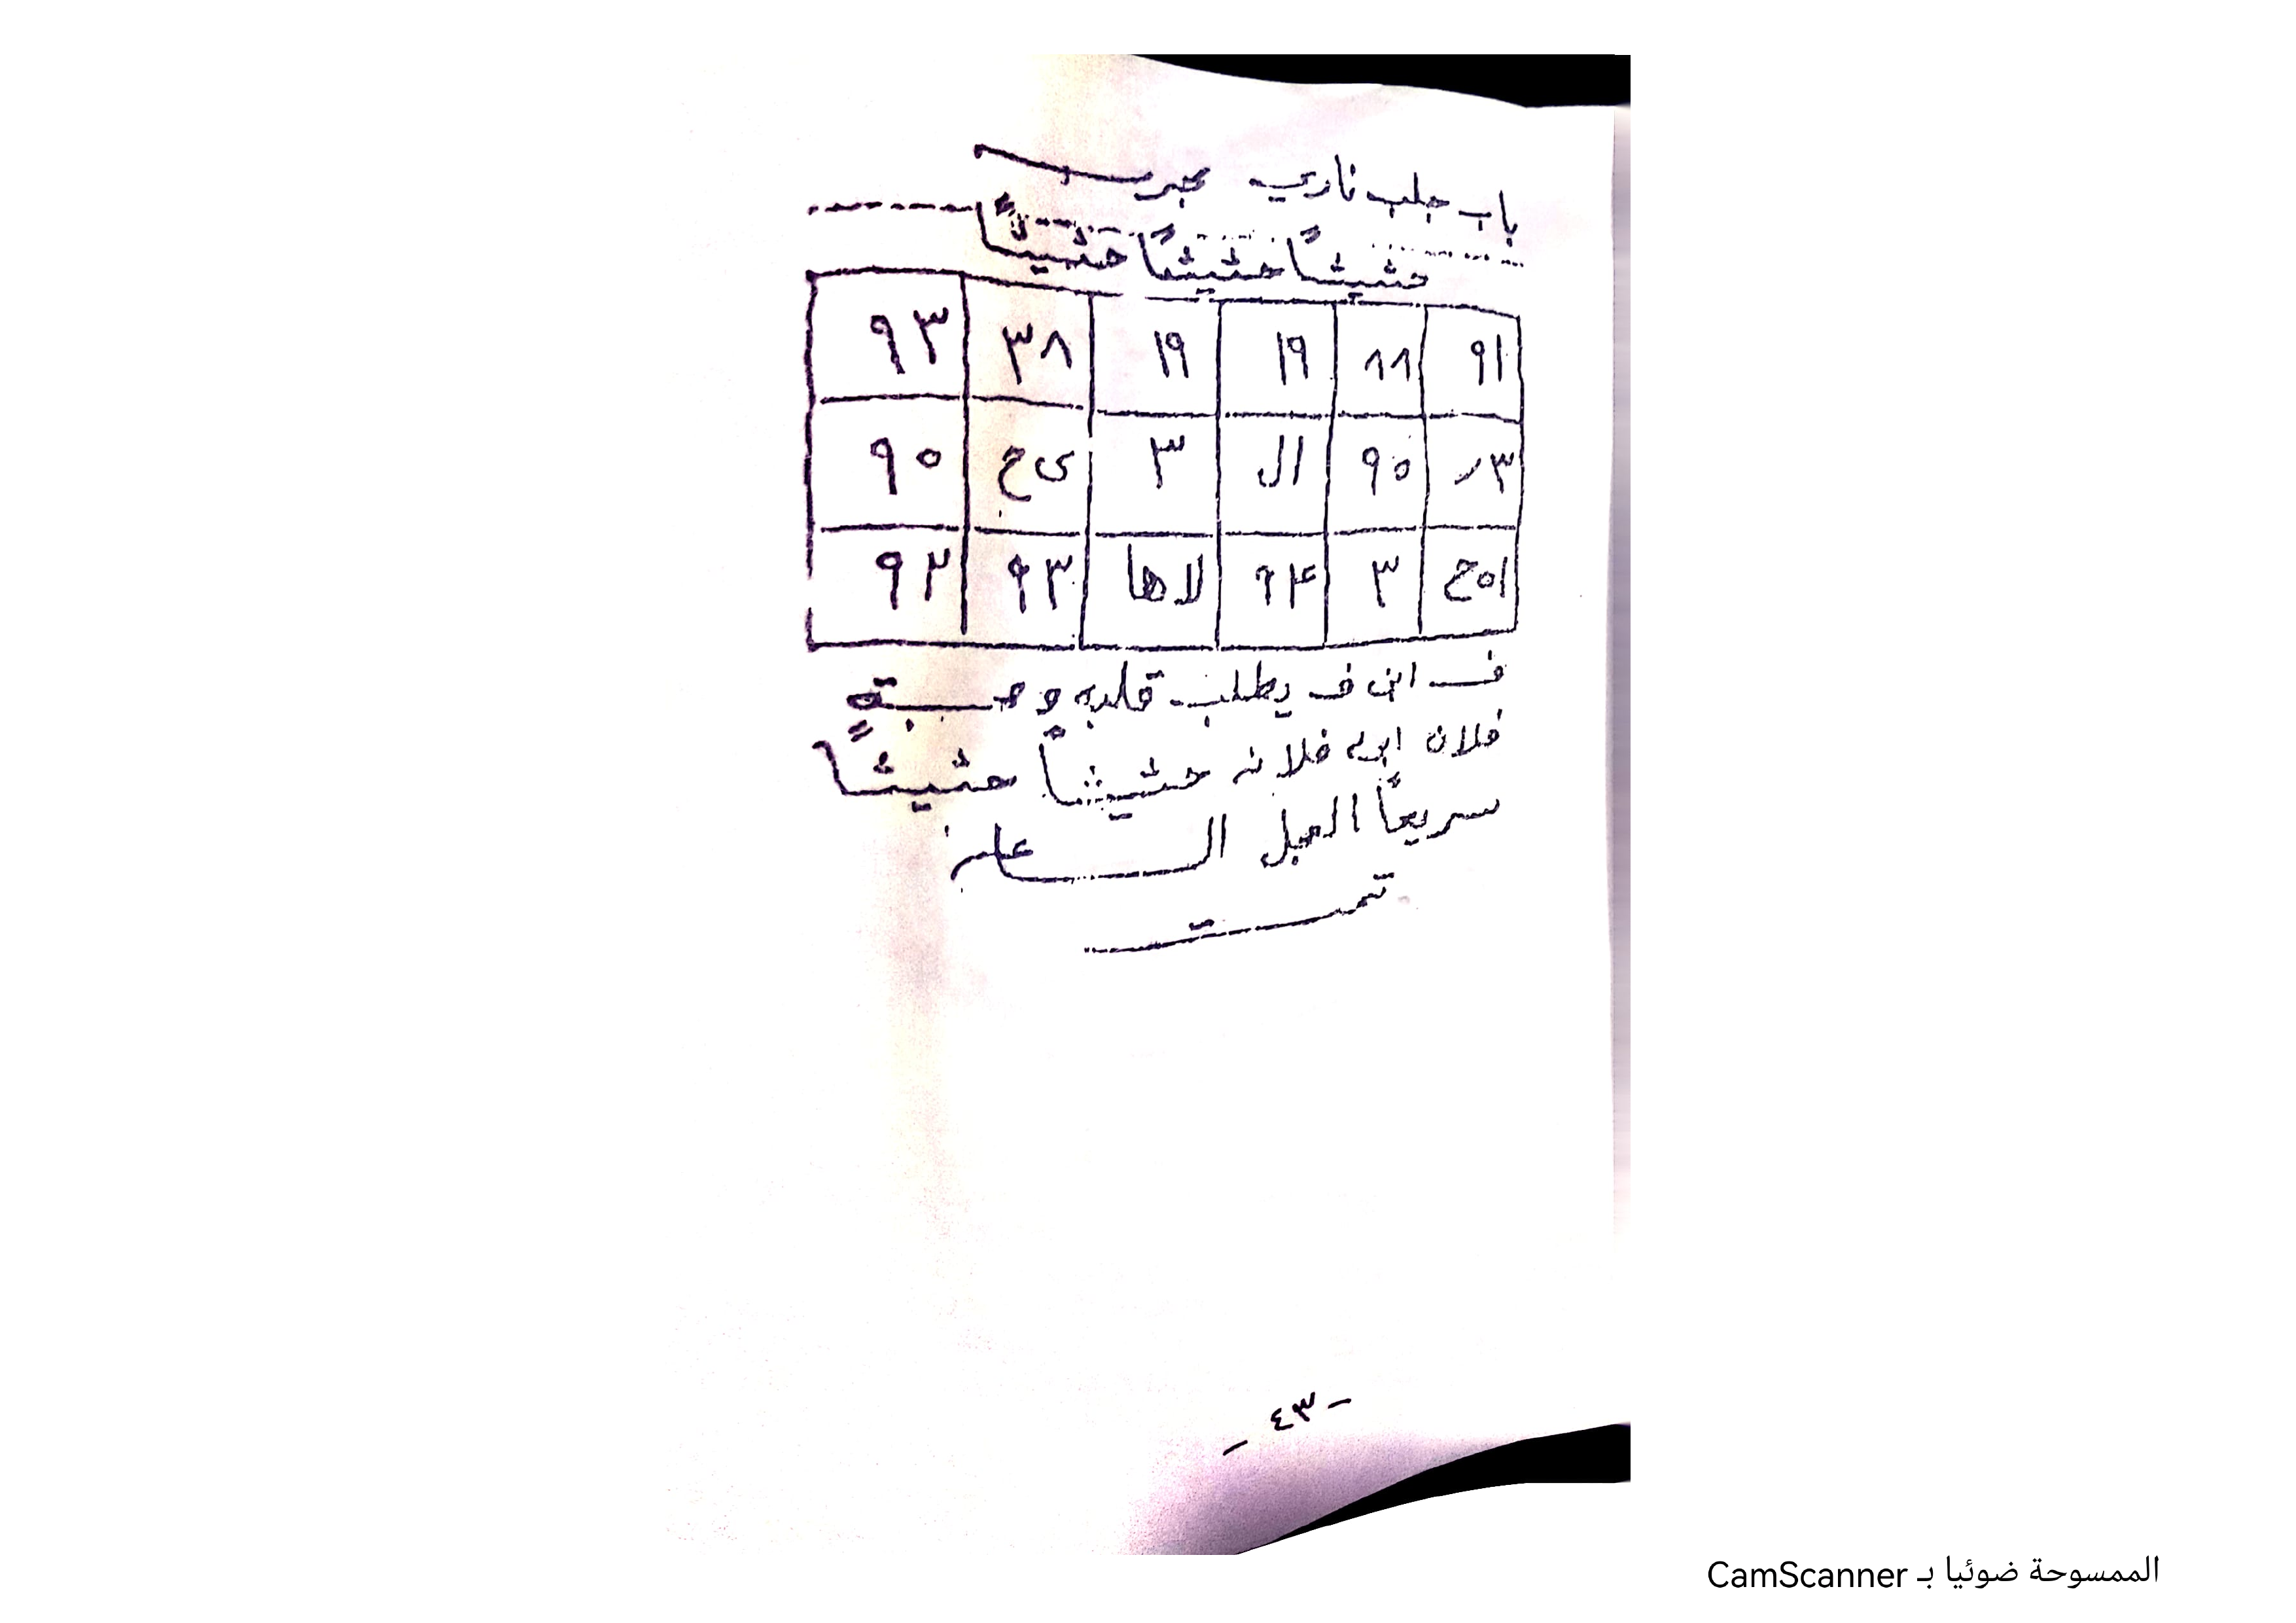 باب جلب ناري مجرب
حثيثاً حثيثاً حثيثاً
٩١ ٨٨ ١٩ ١٩ ٣٨ ٩٣
٣ر ٩٥ ال ٣ ى ح ٩٥
اه ح ٣ ٩٤ لاها ٩٣ ٩٢
ف ابن ف يطلب قلبه و محبته
فلان ابن فلانه حثيثاً حثيثاً
سريعاً العجل
تمت
- ٤٣ -
الممسوحة ضوئيا بـ CamScanner